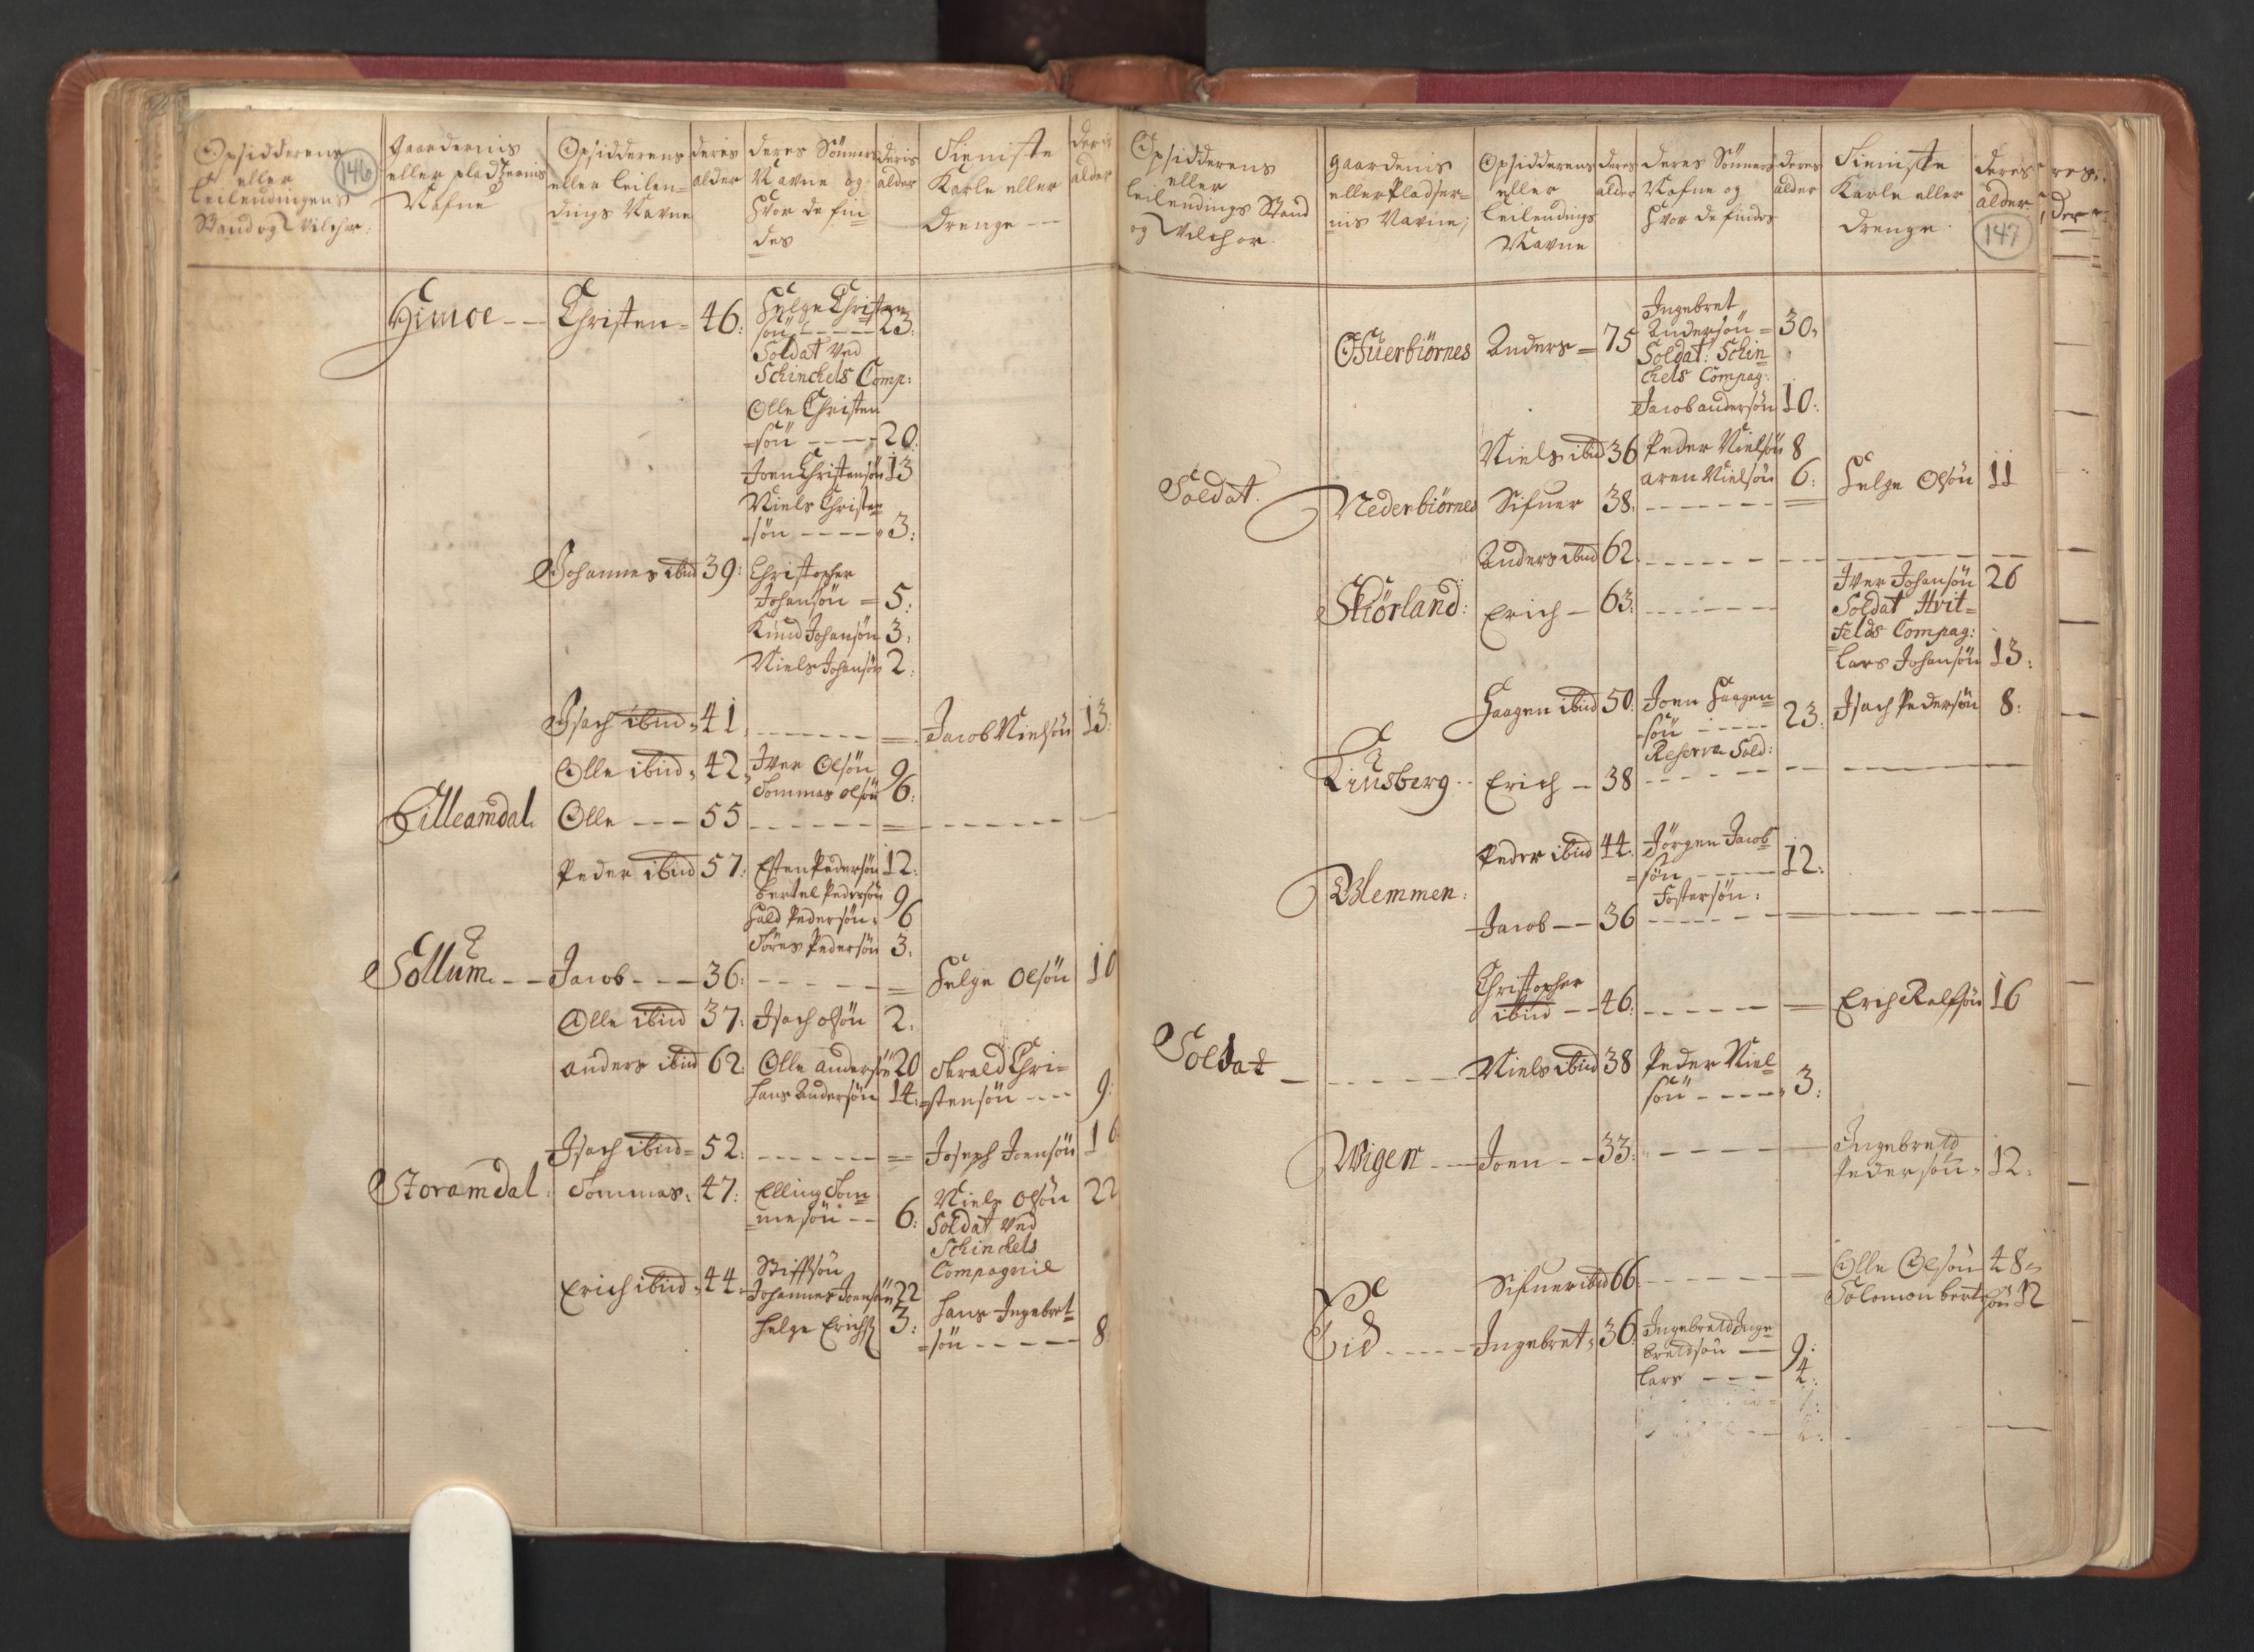 Opsidderens
eller
Leilendingens
Stand og Vilchor:
146
Gaardernis
eller pladzernis
Nafne
Opsidderens
eller Leilen=
dings Navne
deres
alder
deres Sönners
Navne og
hvor de fin
des
deris
alder
Tieniste
Karle eller
Drenge --
deris
alder
Gimoe -- Christen = 46: Helge Christen
sön ---- 23:
Soldat ved
Schinckels Comp:
Olle Christen
=sön ---- 20:
Joen Christensön 13
Niels Christen
=sön ---- 3:
Johannes ibid 39: Christopher
Johansön = 5:
Knud Johansön 3:
Niels Johansön 2:
Isach ibid = 41 ------ = Jacob Nielsön 13:
Olle ibid = 42 Iver Olsön 9
Tommas olsön 6:
Lilleamdal Olle --- 55 ------ = ------ -
Peder ibid 57: Esten Pedersön 12:
Bertel Pedersön 9
Hald Pedersön = 6
Söres Pedersön 3:
Sollum -- Jacob --- 36: ------ = Helge Olsön 10
Olle ibid 37: Isach olsön 2:
anders ibid 62: Olle andersön 20 Harald Chri=
Hans Andersön 14: =stensön --- 9:
Isach ibid = 52: ------ = Joseph Joensön 16
Storamdal: Tommas: 47: Elling Tom=
=mesön -- 6: Niels Olsön 22
Soldat ved
Schinckels
Compagnie
Erich ibid = 44 Stiffsön
Johannes Joensön 22
Helge Erichs 3: Hans Ingebret=
=sön ----- 8
Opsidderens
eller
Leilendings Stand
og Vilchor.
gaardenis
eller Pladser=
nis Navne;
Opsidderens
eller
Leilendings
Navne
deres
alder
deres Sönners
Nafne og
hvor de findes
deres
alder
Tieniste
Karle eller
drenge.
deres
alder:
147
Ofuerbiörnes Anders = 75 Ingebret
Andersön = 30,
Soldat: Schin=
ckels Compag:
Jacob andersön 10:
Niels ibid 36 Peder Nielsön 8
aren Nielsön 6:
Soldat. Nederbiörnes Sifuer 38. ------ = Helge Olsön 11
Anders ibid 62. ------ -- ------ --
Skiörland: Erich - 63: ------ Iver Johansön 26
Soldat Hvit=
felds Compag:
Lars Johansön 13:
Haagen ibid 50: Joen Haagen=
=sön ---- 23:
Reserve Sold: Isach Pedersön 8:
Linsberg -- Erich - 38 ------ -- ------ --
Peder ibid 44: Jörgen Jacob=
=sön ---- 12:
Fostersön:
Blemmen: Jacob -- 36 ------ = ------ --
Christopher
ibid -- 46: ------ = Erich Ralfsön 16
Soldat ------ Niels ibid 38 Peder Niel=
sön ---- 3:
Wigen -- Joen -- 33: ------ Ingebretd
Pedersön = 12:
Sifuer ibid 66: ------ = Olle Olsön 48
Solomon bertsön 12
Eid ----- Ingebret = 36: Ingebretd Inge=
bretdsön -- 9:
Lars --- 4: